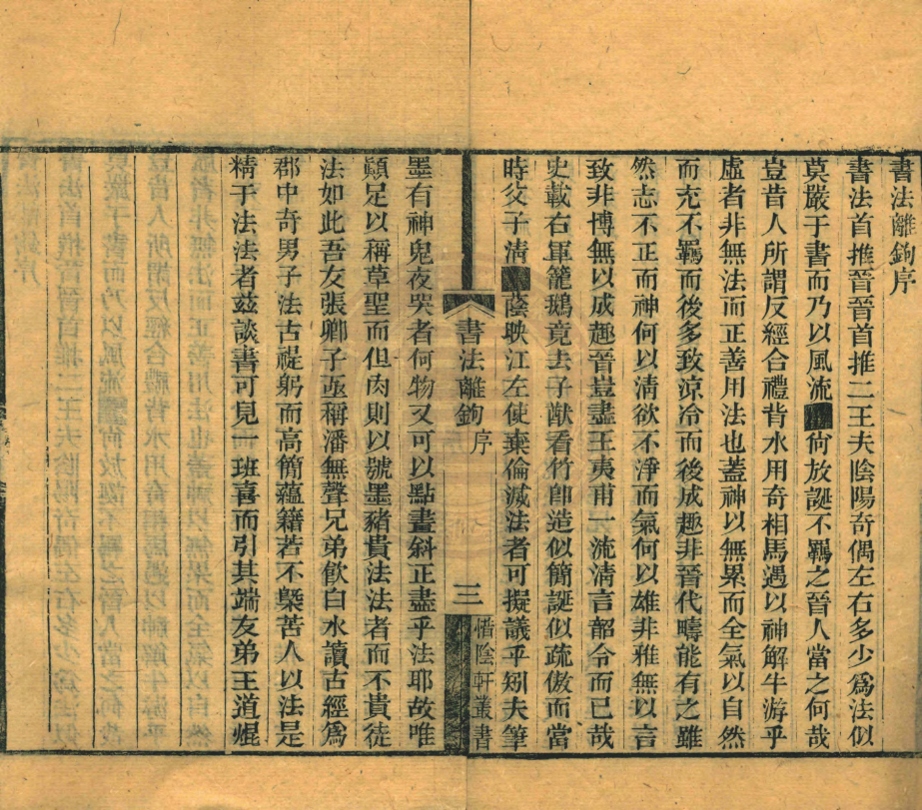 書法離鉤序
書法首推晉晉首推二王夫陰陽奇偶左右多少爲法似
莫嚴于書而乃以風流尙放誕不羈之晉人當之何哉
豈昔人所謂反經合禮背水用奇相馬遇以神解牛游乎
虛者非無法而正善用法也蓋神以無累而全氣以自然
而充不羈而後多致涼冷而後成趣非晉代疇能有之雖
然志不正而神何以清欲不淨而氣何以雄非雅無以言
致非博無以成趣晉豈盡王夷甫一流清言韶令而已哉
史載右軍籠鵝竟去子猷看竹卽造似簡誕似疏傲而當
時父子清蔭映江左使棄倫滅法者可擬議乎矧夫筆
書法離鉤 序
三
惜陰軒叢書
墨有神鬼夜哭者何物又可以點畫斜正盡乎法耶故唯
顚足以稱草聖而但肉則以號墨豬貴法法者而不貴徒
法如此吾友張卿子亟稱潘無聲兄弟飲白水讀古經爲
郡中奇男子法古禔躬而高簡蘊籍若不槩苦人以法是
精于法法者玆談書可見一班喜而引其端友弟王道焜